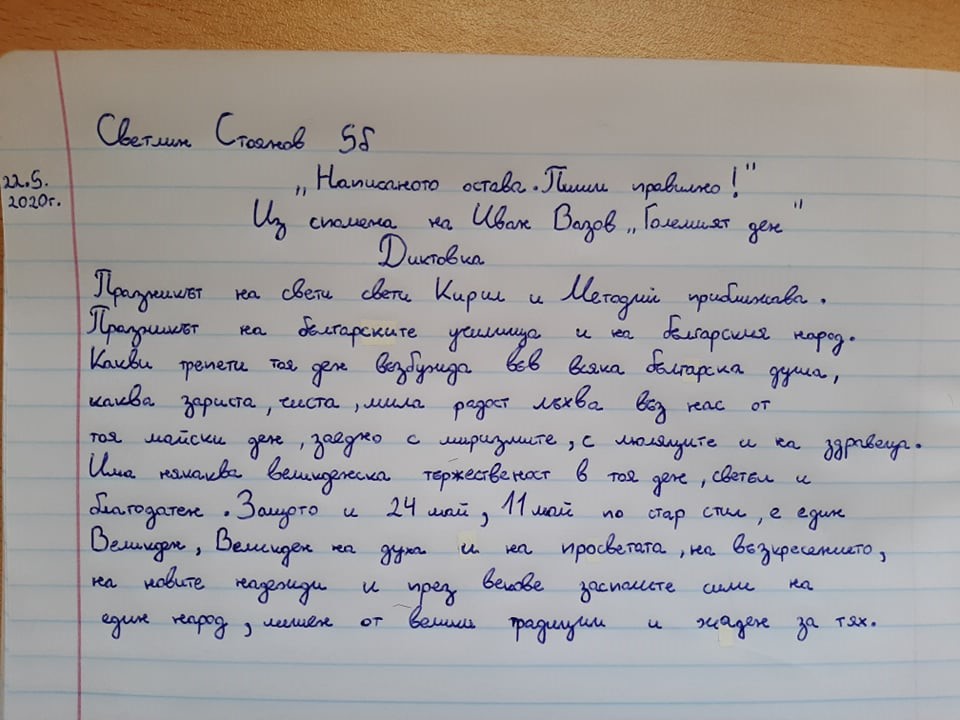 Светлин Стоянов 5б
22.5.
2020г.
„Написаното остава. Пиши правилно!"
Из спомена на Иван Вазов „Големият ден"
Диктовка
Празникът на свети свети Кирил и Методий приближава.
Празникът на българските училища и на българския народ.
Какви трепети тоя ден възбужда във всяка българска душа,
каква зариста, чиста, мила радост лъхва въз нас от
тоя майски ден, заедно с миризмите, с люляците и на здравеца.
Има някаква великденска тържественост в тоя ден, светъл и
благодатен. Защото и 24 май, 11 май по стар стил, е един
Великден, Великден на духа и на просветата, на възкресението,
на новите надежди и през векове заспалите сили на
един народ, лишен от велики традиции и жаден за тях.